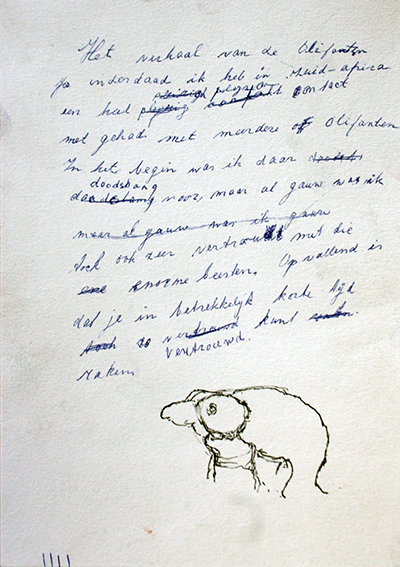 Het verhaal van de Olifanten
Ja inderdaad ik heb in Zuid-africa
een hal contact
met gehad met meerdere of Olifanten
In het begin was ik daar
doodsbang
doodsbang voor, maar al gauw was ik
maar al gauw was ik gauw
toch ook zeer vertrouwd met die
ene enorme beesten. Opvallend is
dat je in betrekkelijk korte tijd
toch zo vertrouwd kunt
vertrouwd.
raken.